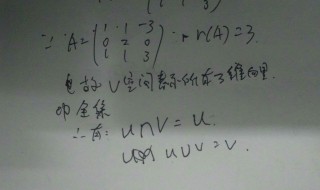 ∵ A = ( 1 1 -3
0 2 0
1 1 3 ) ∴ r(A)=3.
也故 V空间表示所有3维向量
即全集
∴有: U∩V = U.
U∪V = V.